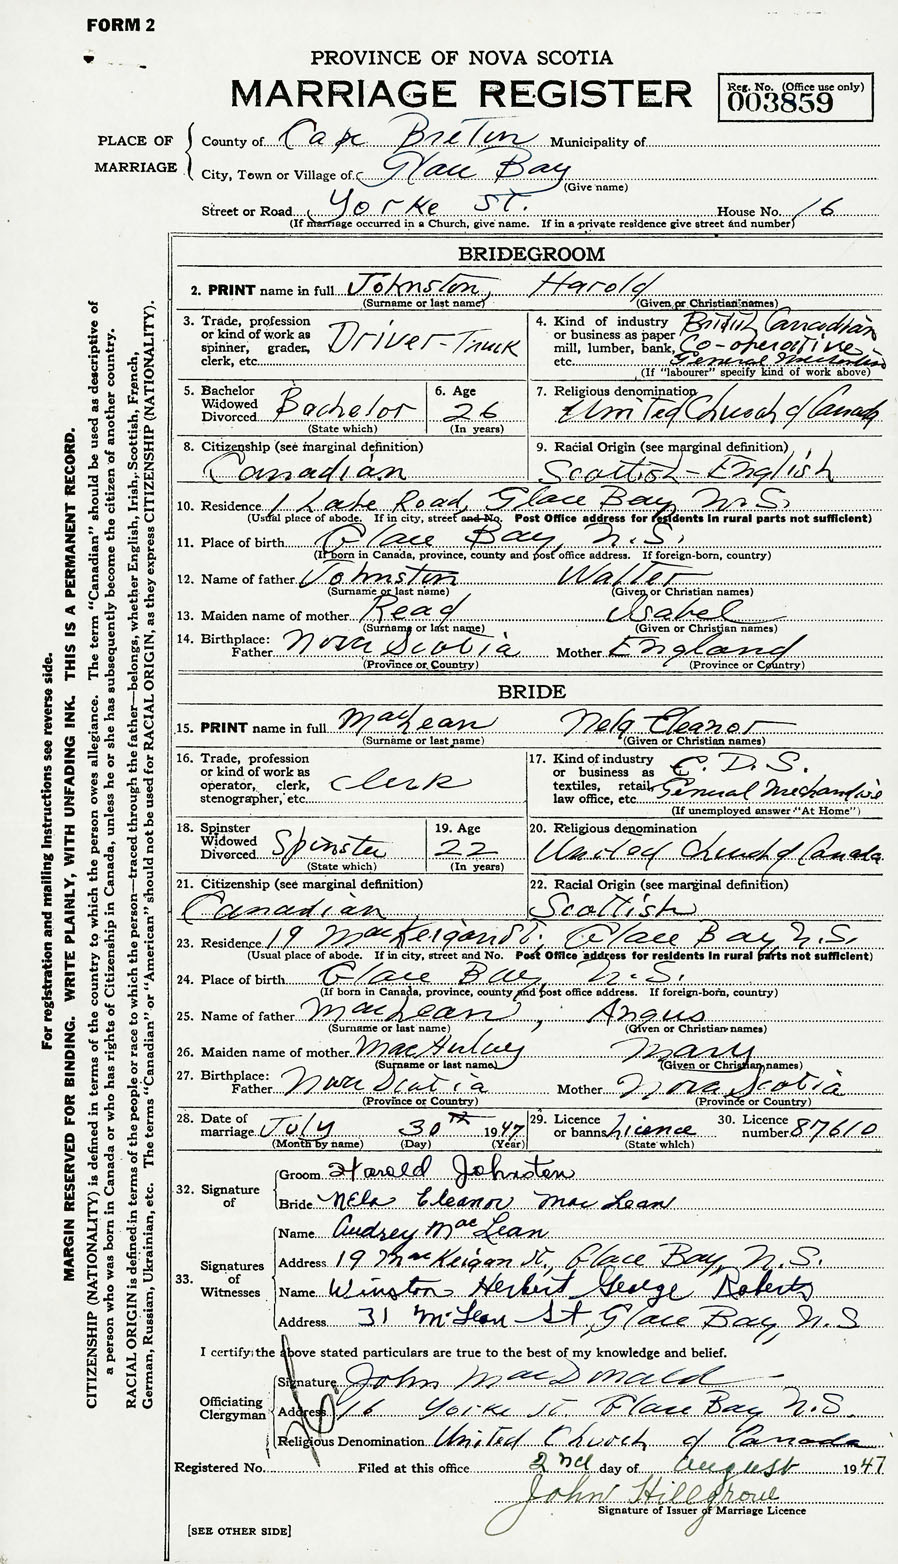 FORM 2
PROVINCE OF NOVA SCOTIA
MARRIAGE REGISTER
Reg. No. (Office use only)
003859
PLACE OF MARRIAGE
County of Cape Breton Municipality of
City, Town or Village of Glace Bay
(Give name)
Street or Road Yorke St. House No. 16
(If marriage occurred in a Church, give name. If in a private residence give street and number)
BRIDEGROOM
2. PRINT name in full Johnston, Harold
(Surname or last name) (Given or Christian names)
3. Trade, profession or kind of work as spinner, grader, clerk, etc. Driver-Truck
4. Kind of industry or business as paper mill, lumber, bank, etc. British Canadian Co-operative General
(If "labourer" specify kind of work above)
5. Bachelor Widowed Divorced Bachelor
(State which)
6. Age 26
(In years)
7. Religious denomination United Church of Canada
8. Citizenship (see marginal definition) Canadian
9. Racial Origin (see marginal definition) Scottish-English
10. Residence 1 Lake Road, Glace Bay N.S.
(Usual place of abode. If in city, street and No. Post Office address for residents in rural parts not sufficient)
11. Place of birth Glace Bay, N.S.
(If born in Canada, province, county and post office address. If foreign-born, country)
12. Name of father Johnston Walter
(Surname or last name) (Given or Christian names)
13. Maiden name of mother Read Isabel
(Surname or last name) (Given or Christian names)
14. Birthplace: Father Nova Scotia Mother England
(Province or Country) (Province or Country)
BRIDE
15. PRINT name in full MacLean Nela Eleanor
(Surname or last name) (Given or Christian names)
16. Trade, profession or kind of work as operator, clerk, stenographer, etc. Clerk
17. Kind of industry or business as textiles, retail, law office, etc. C. D. S. General Mechandise
(If unemployed answer "At Home")
18. Spinster Widowed Divorced Spinster
(State which)
19. Age 22
(In years)
20. Religious denomination United Church of Canada
21. Citizenship (see marginal definition) Canadian
22. Racial Origin (see marginal definition) Scottish
23. Residence 19 MacKeigan St., Glace Bay, N.S.
(Usual place of abode. If in city, street and No. Post Office address for residents in rural parts not sufficient)
24. Place of birth Glace Bay, N.S.
(If born in Canada, province, county and post office address. If foreign-born, country)
25. Name of father MacLean, Angus
(Surname or last name) (Given or Christian names)
26. Maiden name of mother Mary
(Surname or last name) (Given or Christian names)
27. Birthplace: Father Nova Scotia Mother Nova Scotia
(Province or Country) (Province or Country)
28. Date of marriage July 30th 1947
(Month by name) (Day) (Year)
29. Licence or banns Licence
(State which)
30. Licence number 87610
32. Signature of
Groom Harold Johnston
Bride Nela Eleanor MacLean
33. Signatures of Witnesses
Name Audrey MacLean
Address 19 MacKeigan St., Glace Bay, N.S.
Name Winston Herbert George Roberts
Address 31 McLean St, Glace Bay, N.S
I certify the above stated particulars are true to the best of my knowledge and belief.
Officiating Clergyman
Signature John MacDonald
Address 16 Yorke St. Glace Bay N.S.
Religious Denomination United Church of Canada
Registered No. Filed at this office 2nd day of August 1947
John Hillgrove
Signature of Issuer of Marriage Licence
[SEE OTHER SIDE]
For registration and mailing instructions see reverse side.
MARGIN RESERVED FOR BINDING. WRITE PLAINLY, WITH UNFADING INK. THIS IS A PERMANENT RECORD.
CITIZENSHIP (NATIONALITY) is defined in terms of the country to which the person owes allegiance. The term "Canadian" should be used as descriptive of
a person who was born in Canada or who has rights of Citizenship in Canada, unless he or she has subsequently become the citizen of another country.
RACIAL ORIGIN is defined in terms of the people or race to which the person—traced through the father—belongs, whether English, Irish, Scottish, French,
German, Russian, Ukrainian, etc. The terms "Canadian" or "American" should not be used for RACIAL ORIGIN, as they express CITIZENSHIP (NATIONALITY).